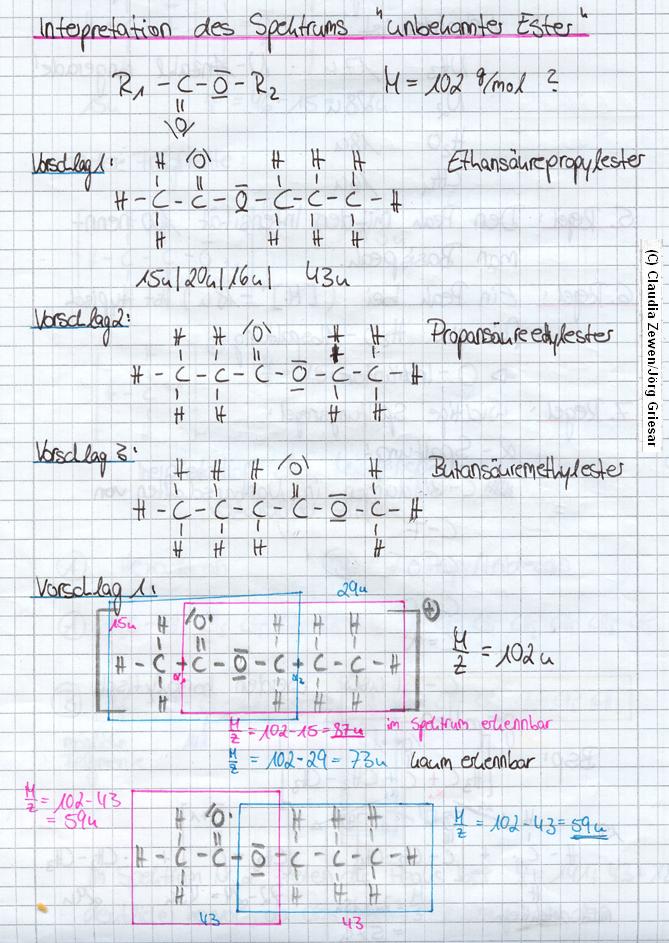 Interpretation des Spektrums "unbekannter Ester"
R₁ – C – O – R₂ M = 102 g/mol ?
||
O
Vorschlag 1: H O H H H Ethansäurepropylester
H – C – C – O – C – C – C – H
H H H H
15u | 20u | 16u | 43u
Vorschlag 2: H H O H H Propansäureedylester
H – C – C – C – O – C – C – H
H H H H
Vorschlag 3: H H H O H Butansäuremethylester
H – C – C – C – C – O – C – H
H H H H
Vorschlag 1: 29u
15u H O H H H +
H – C + C – O – C + C – C – H M/Z = 102u
α₁ α₂
H H H H
M/Z = 102-15 = 87u im Spektrum erkennbar
M/Z = 102-29 = 73u kaum erkennbar
M/Z = 102-43
= 59u
H O H H H M/Z = 102-43 = 59u
H – C – C – O – C – C – C – H
H H H H
43 43
(C) Claudia Zewen/Jörg Griesar